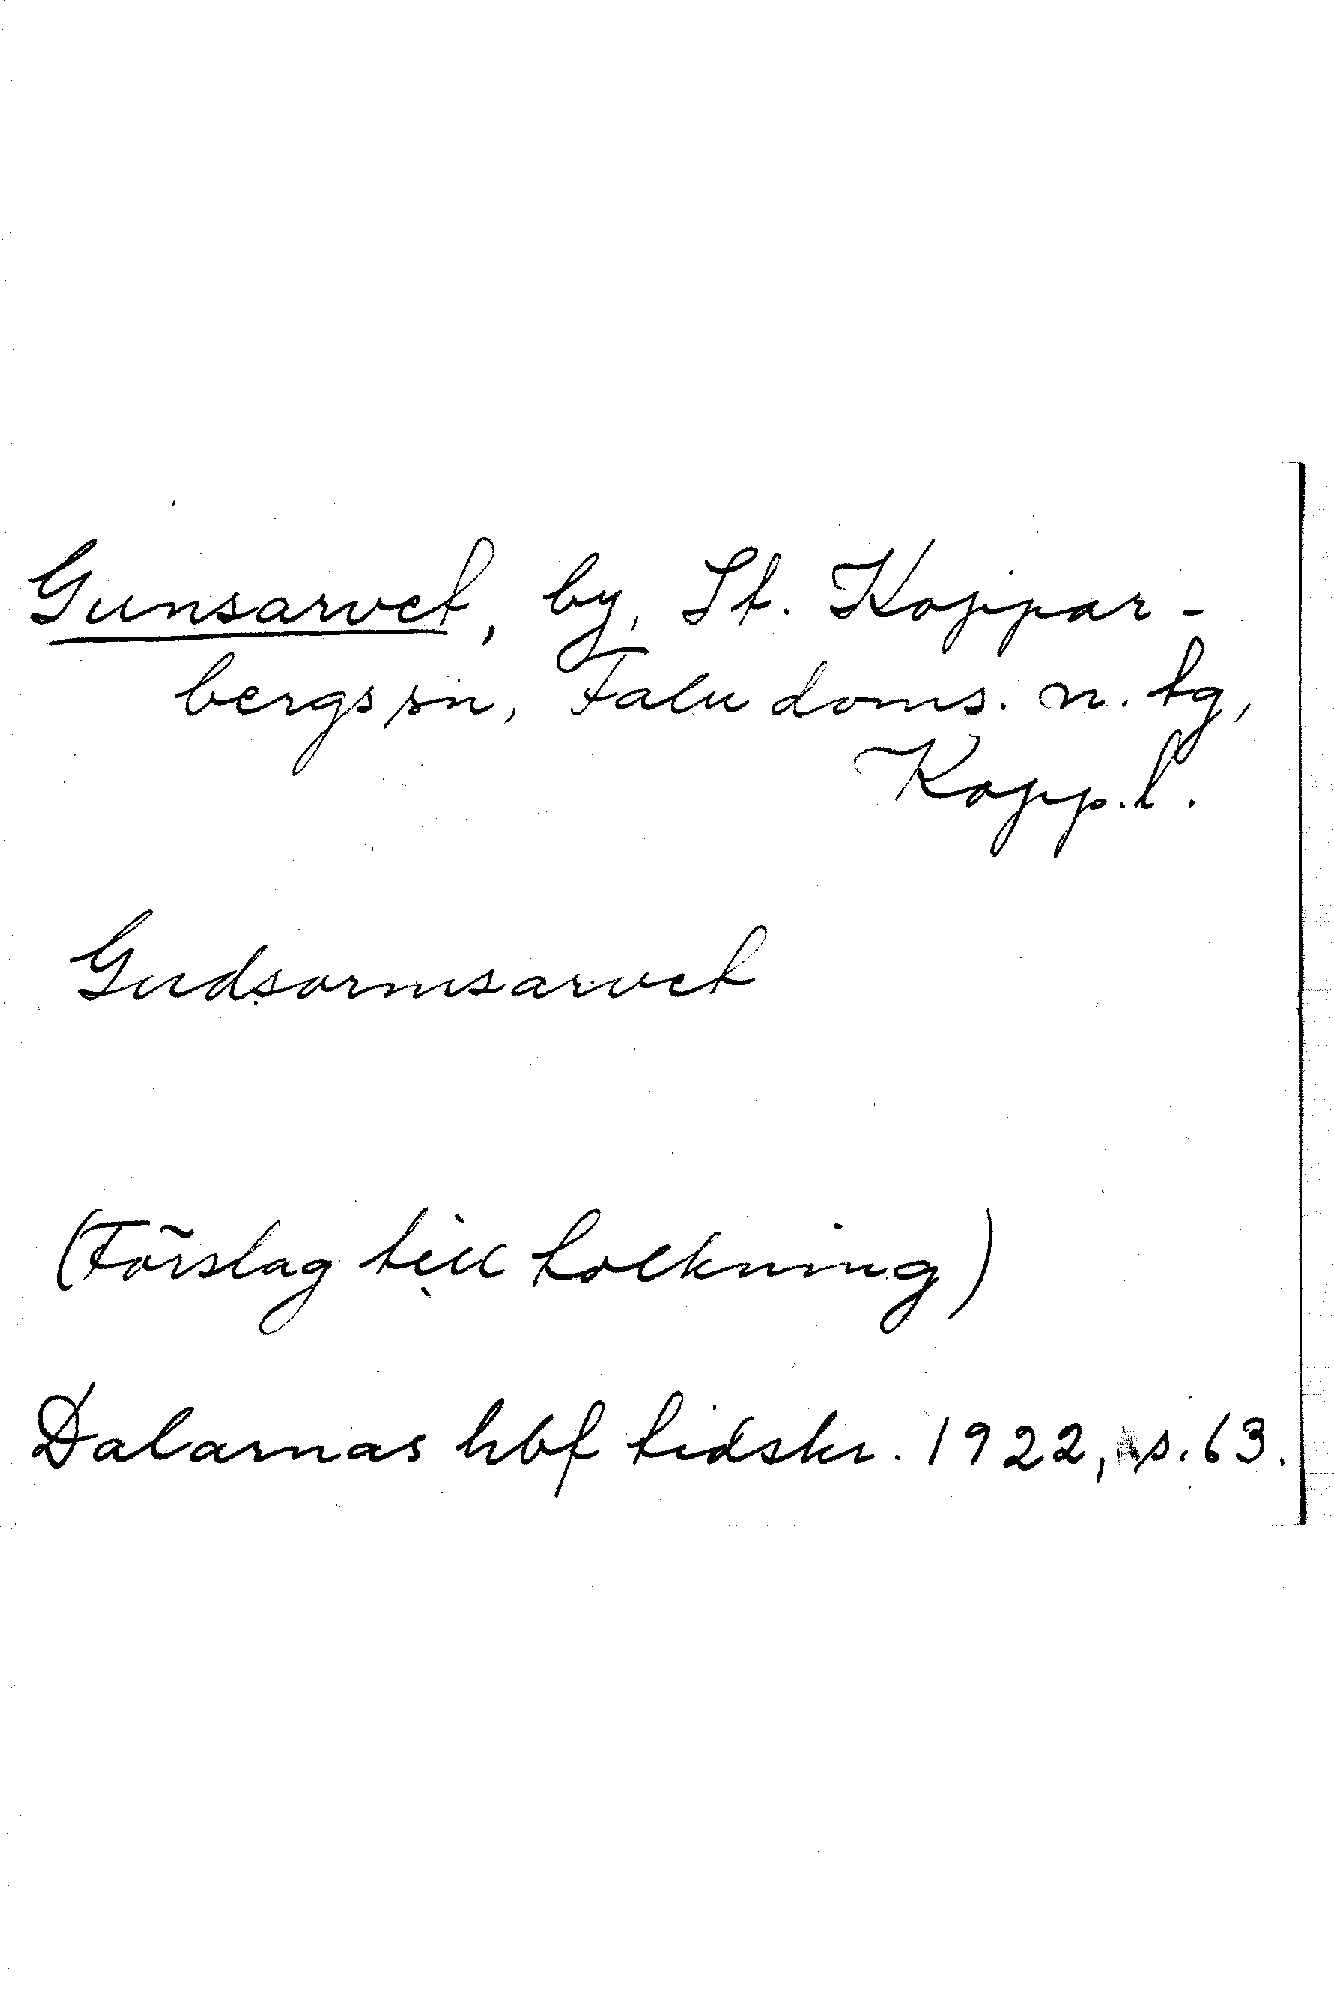 Gunsarvet, by, St. Koppar-
bergs sn, Falu doms. n. tg,
Kopp. l.
Gudsormsarvet
(Förslag till tolkning)
Dalarnas hbf tidskr. 1922, s. 63.